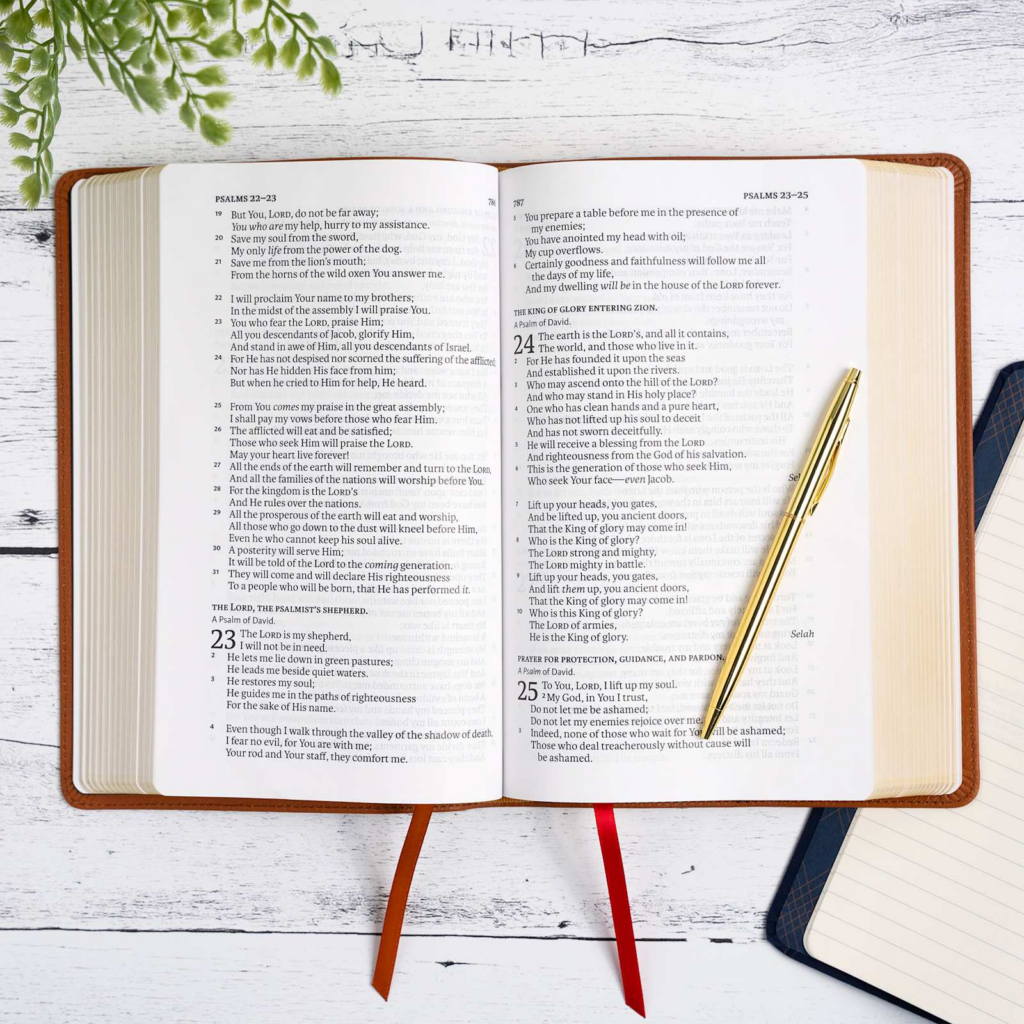 PSALMS 22–23
19 But You, LORD, do not be far away;
You who are my help, hurry to my assistance.
20 Save my soul from the sword,
My only life from the power of the dog.
21 Save me from the lion's mouth;
From the horns of the wild oxen You answer me.
22 I will proclaim Your name to my brothers;
In the midst of the assembly I will praise You.
23 You who fear the LORD, praise Him;
All you descendants of Jacob, glorify Him,
And stand in awe of Him, all you descendants of Israel.
24 For He has not despised nor scorned the suffering of the afflicted;
Nor has He hidden His face from him;
But when he cried to Him for help, He heard.
25 From You comes my praise in the great assembly;
I shall pay my vows before those who fear Him.
26 The afflicted will eat and be satisfied;
Those who seek Him will praise the LORD.
May your heart live forever!
27 All the ends of the earth will remember and turn to the LORD,
And all the families of the nations will worship before You.
28 For the kingdom is the LORD'S
And He rules over the nations.
29 All the prosperous of the earth will eat and worship,
All those who go down to the dust will kneel before Him,
Even he who cannot keep his soul alive.
30 A posterity will serve Him;
It will be told of the Lord to the coming generation.
31 They will come and will declare His righteousness
To a people who will be born, that He has performed it.
THE LORD, THE PSALMIST'S SHEPHERD.
A Psalm of David.
23 The LORD is my shepherd,
I will not be in need.
2 He lets me lie down in green pastures;
He leads me beside quiet waters.
3 He restores my soul;
He guides me in the paths of righteousness
For the sake of His name.
4 Even though I walk through the valley of the shadow of death,
I fear no evil, for You are with me;
Your rod and Your staff, they comfort me.
787 PSALMS 23–25
5 You prepare a table before me in the presence of
my enemies;
You have anointed my head with oil;
My cup overflows.
6 Certainly goodness and faithfulness will follow me all
the days of my life,
And my dwelling will be in the house of the LORD forever.
THE KING OF GLORY ENTERING ZION.
A Psalm of David.
24 The earth is the LORD'S, and all it contains,
The world, and those who live in it.
2 For He has founded it upon the seas
And established it upon the rivers.
3 Who may ascend onto the hill of the LORD?
And who may stand in His holy place?
4 One who has clean hands and a pure heart,
Who has not lifted up his soul to deceit
And has not sworn deceitfully.
5 He will receive a blessing from the LORD
And righteousness from the God of his salvation.
6 This is the generation of those who seek Him,
Who seek Your face—even Jacob.
7 Lift up your heads, you gates,
And be lifted up, you ancient doors,
That the King of glory may come in!
8 Who is the King of glory?
The LORD strong and mighty,
The LORD mighty in battle.
9 Lift up your heads, you gates,
And lift them up, you ancient doors,
That the King of glory may come in!
10 Who is this King of glory?
The LORD of armies,
He is the King of glory. Selah
PRAYER FOR PROTECTION, GUIDANCE, AND PARDON.
A Psalm of David.
25 To You, LORD, I lift up my soul.
2 My God, in You I trust,
Do not let me be ashamed;
Do not let my enemies rejoice over me.
3 Indeed, none of those who wait for You will be ashamed;
Those who deal treacherously without cause will
be ashamed.